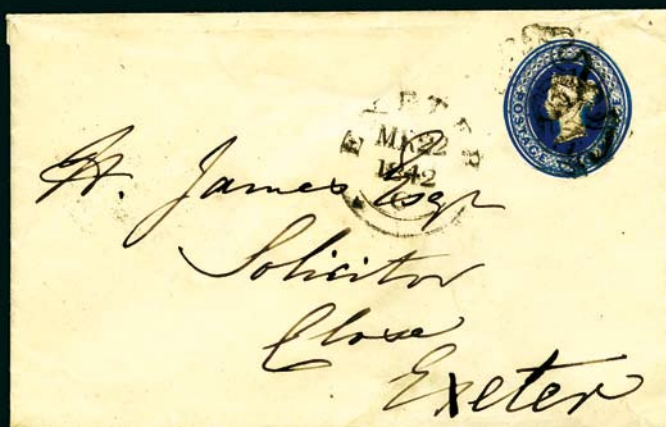 POSTAGE
EXETER
MR 22
1842
H. James Esqr
Solicitor
Close
Exeter